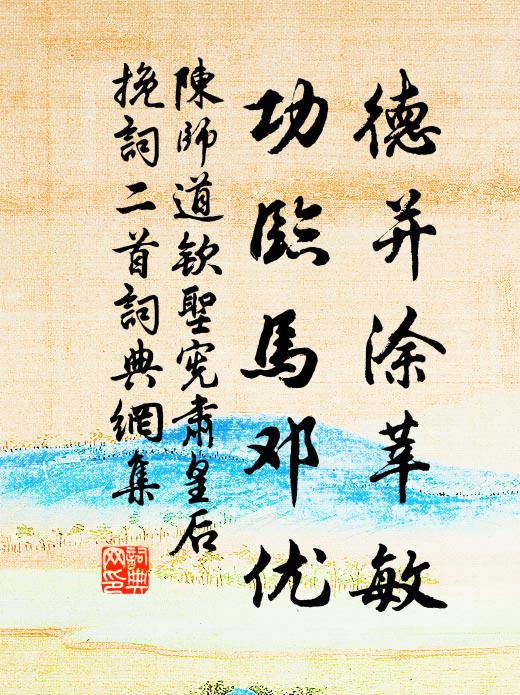 德并涂莘敏
功臨馬邓优
陳師道欽聖宪肅皇后
挽詞二首詞典網集
詞典网印